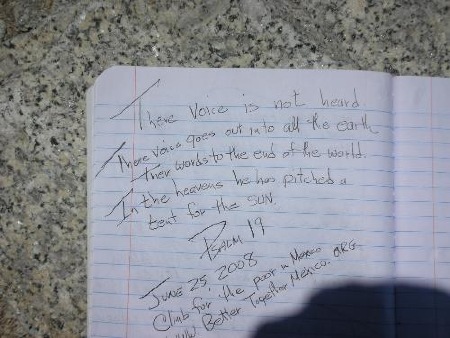 There voice is not heard
There voice goes out into all the earth
Ther words to the end of the world.
In the heavens he has pitched a
tent for the SUN.
PSALM 19
JUNE 25, 2008
Climb for the poor in Mexico
WWW. Better Together Mexico. ORG.